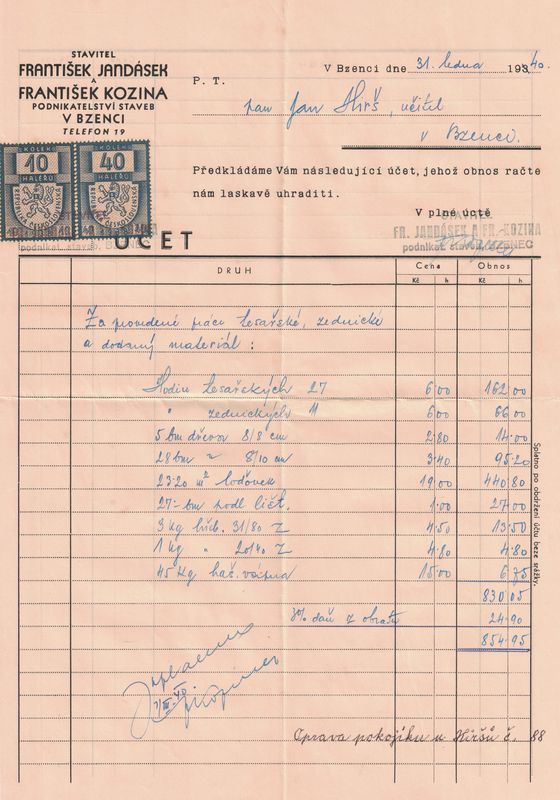 STAVITEL
FRANTIŠEK JANDÁSEK
A
FRANTIŠEK KOZINA
PODNIKATELSTVÍ STAVEB
V BZENCI
TELEFON 19
V Bzenci dne 31. ledna 1940.
P. T.
pan Jan Hirš, učitel
v Bzenci.
KOLEK
10
HALÉŘŮ
KOLEK
40
HALÉŘŮ
Předkládáme Vám následující účet, jehož obnos račte
nám laskavě uhraditi.
V plné úctě
STAVITEL
FR. JANDÁSEK A FR. KOZINA
podnikat. staveb, BZENEC
podnikat. staveb, BZENEC
ÚČET
DRUH Cena Obnos
Kč h Kč h
Za provedené práce tesařské, zednické
a dodaný materiál:
Hodin tesařských 27 6 00 162 00
" zednických 11 6 00 66 00
5 bm dřeva 8/8 cm 2 80 14 00
28 bm " 8/10 cm 3 40 95 20
23·20 m² loďovek 19 00 440 80
27·- bm podl. lišt. 1 00 27 00
3 kg hřeb. 31/80 Z 4 50 13 50
1 kg " 20/40 Z 4 80 4 80
45 kg haš. vápna 15 00 6 75
830 05
3% daň z obratu 24 90
854 95
Splatno po obdržení účtu beze srážky.
Zaplaceno
Oprava pokojíku u Hiršů č. 88